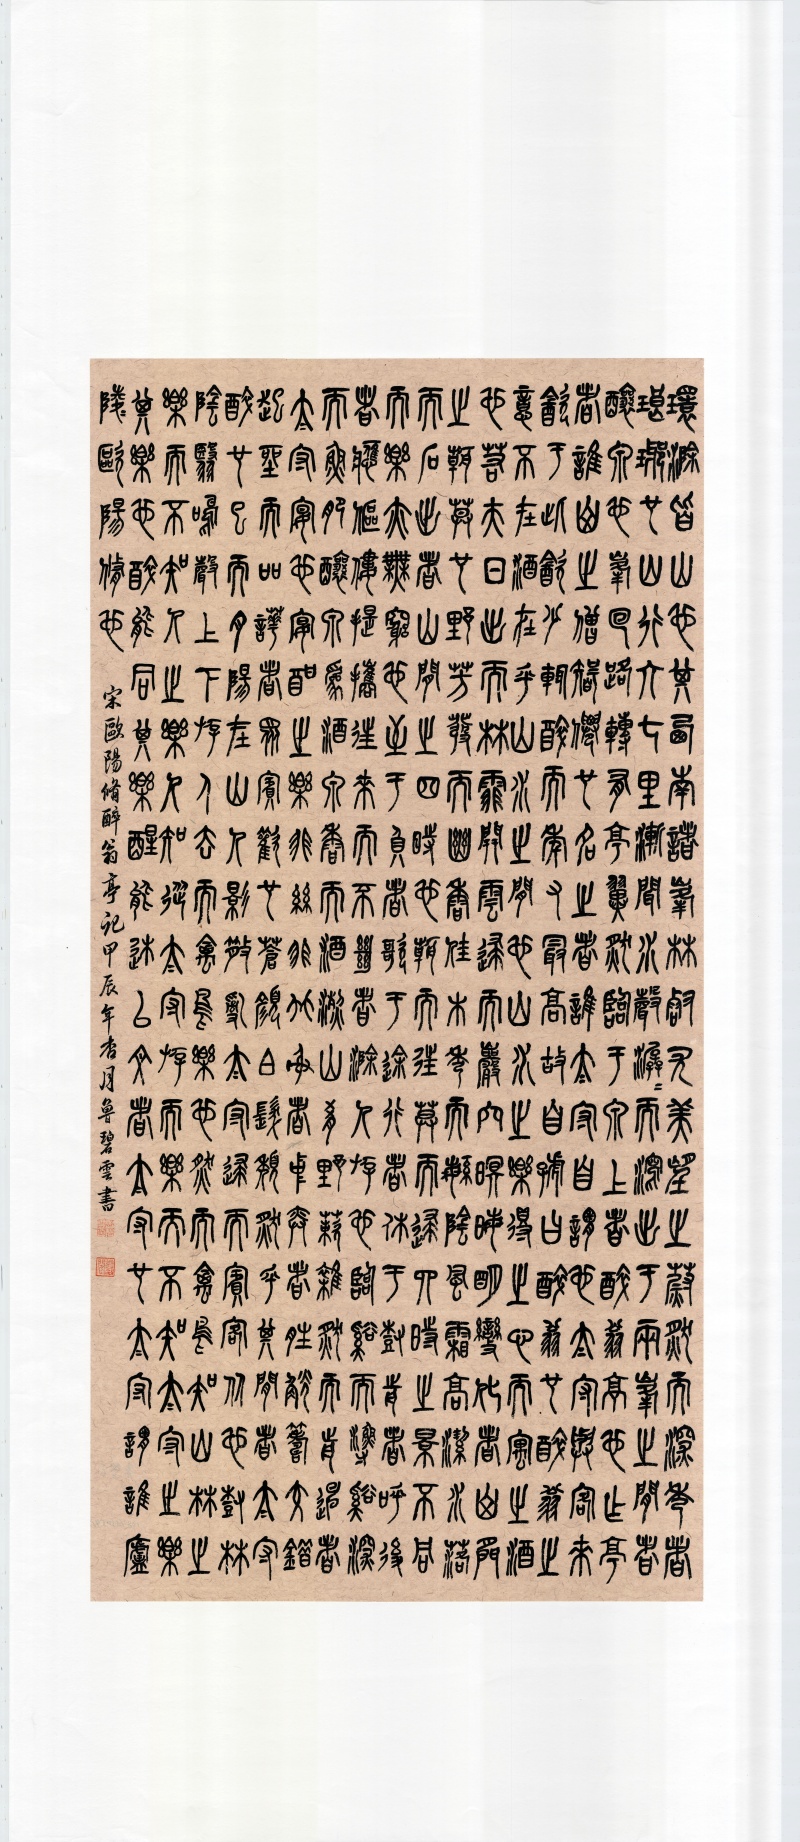 環滁皆山也其西南諸峯林壑尤美望之蔚然而深秀者
琅琊也山行六七里漸聞水聲潺〻而瀉出于兩峯之間者
釀泉也峯回路轉有亭翼然臨于泉上者醉翁亭也作亭
者誰山之僧智僊也名之者誰太守自謂也太守與客來
飲于此飲少輒醉而年又最高故自號曰醉翁也醉翁之
意不在酒在乎山水之間也山水之樂得之心而寓之酒
也若夫日出而林霏開雲歸而巖穴暝晦明變化者山間
之朝暮也野芳發而幽香佳木秀而繁陰風霜高潔水落
而石出者山間之四時也朝而往暮而歸四時之景不同
而樂亦無窮也至于負者歌于途行者休于樹前者呼後
者應傴僂提攜往來而不絕者滁人遊也臨谿而漁谿深
而魚肥釀泉為酒泉香而酒洌山肴野蔌雜然而前陳者
太守宴也宴酣之樂非絲非竹射者中弈者勝觥籌交錯
起坐而諠譁者眾賓歡也蒼顏白髮頹然乎其間者太守
醉也已而夕陽在山人影散亂太守歸而賓客從也樹林
陰翳鳴聲上下遊人去而禽鳥樂也然而禽鳥知山林之
樂而不知人之樂人知從太守遊而樂而不知太守之樂
其樂也醉能同其樂醒能述以文者太守也太守謂誰廬
陵歐陽脩也
宋歐陽脩醉翁亭記甲辰年杏月魯碧雲書